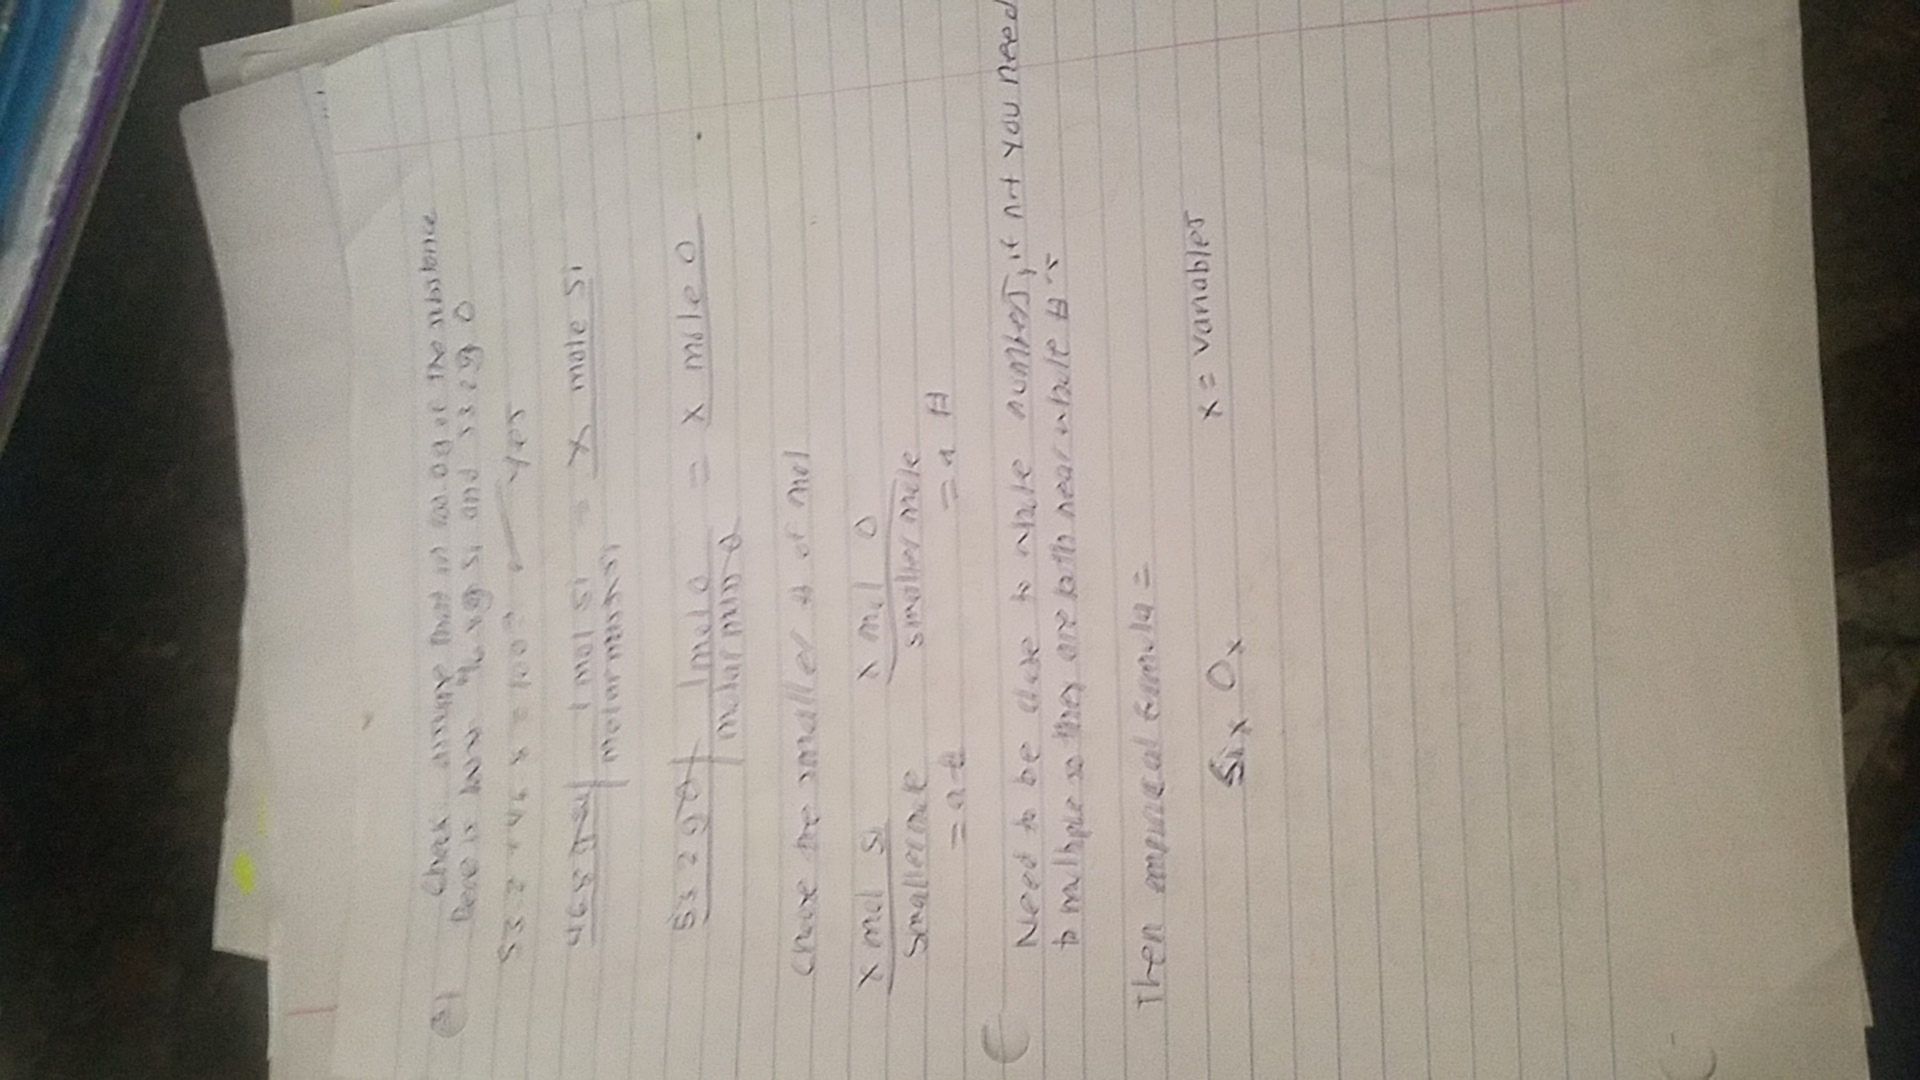 Check: assume that in 100.0g of the substance
there is have 46.8g Si and 53.2g O
53.2 + 46.8 = 100? yes
46.8 g Si 1 mol Si = x mole Si
molar mass Si
53.2 g O 1 mol O = x mole O
molar mass O
Choose the smaller # of mol
x mol Si x mol O
smaller mole smaller mole
= a # = a #
Need to be close to whole numbers, if not you need
to multiple so they are both near whole #'s
Then empirical formula =
Six Ox x = variables